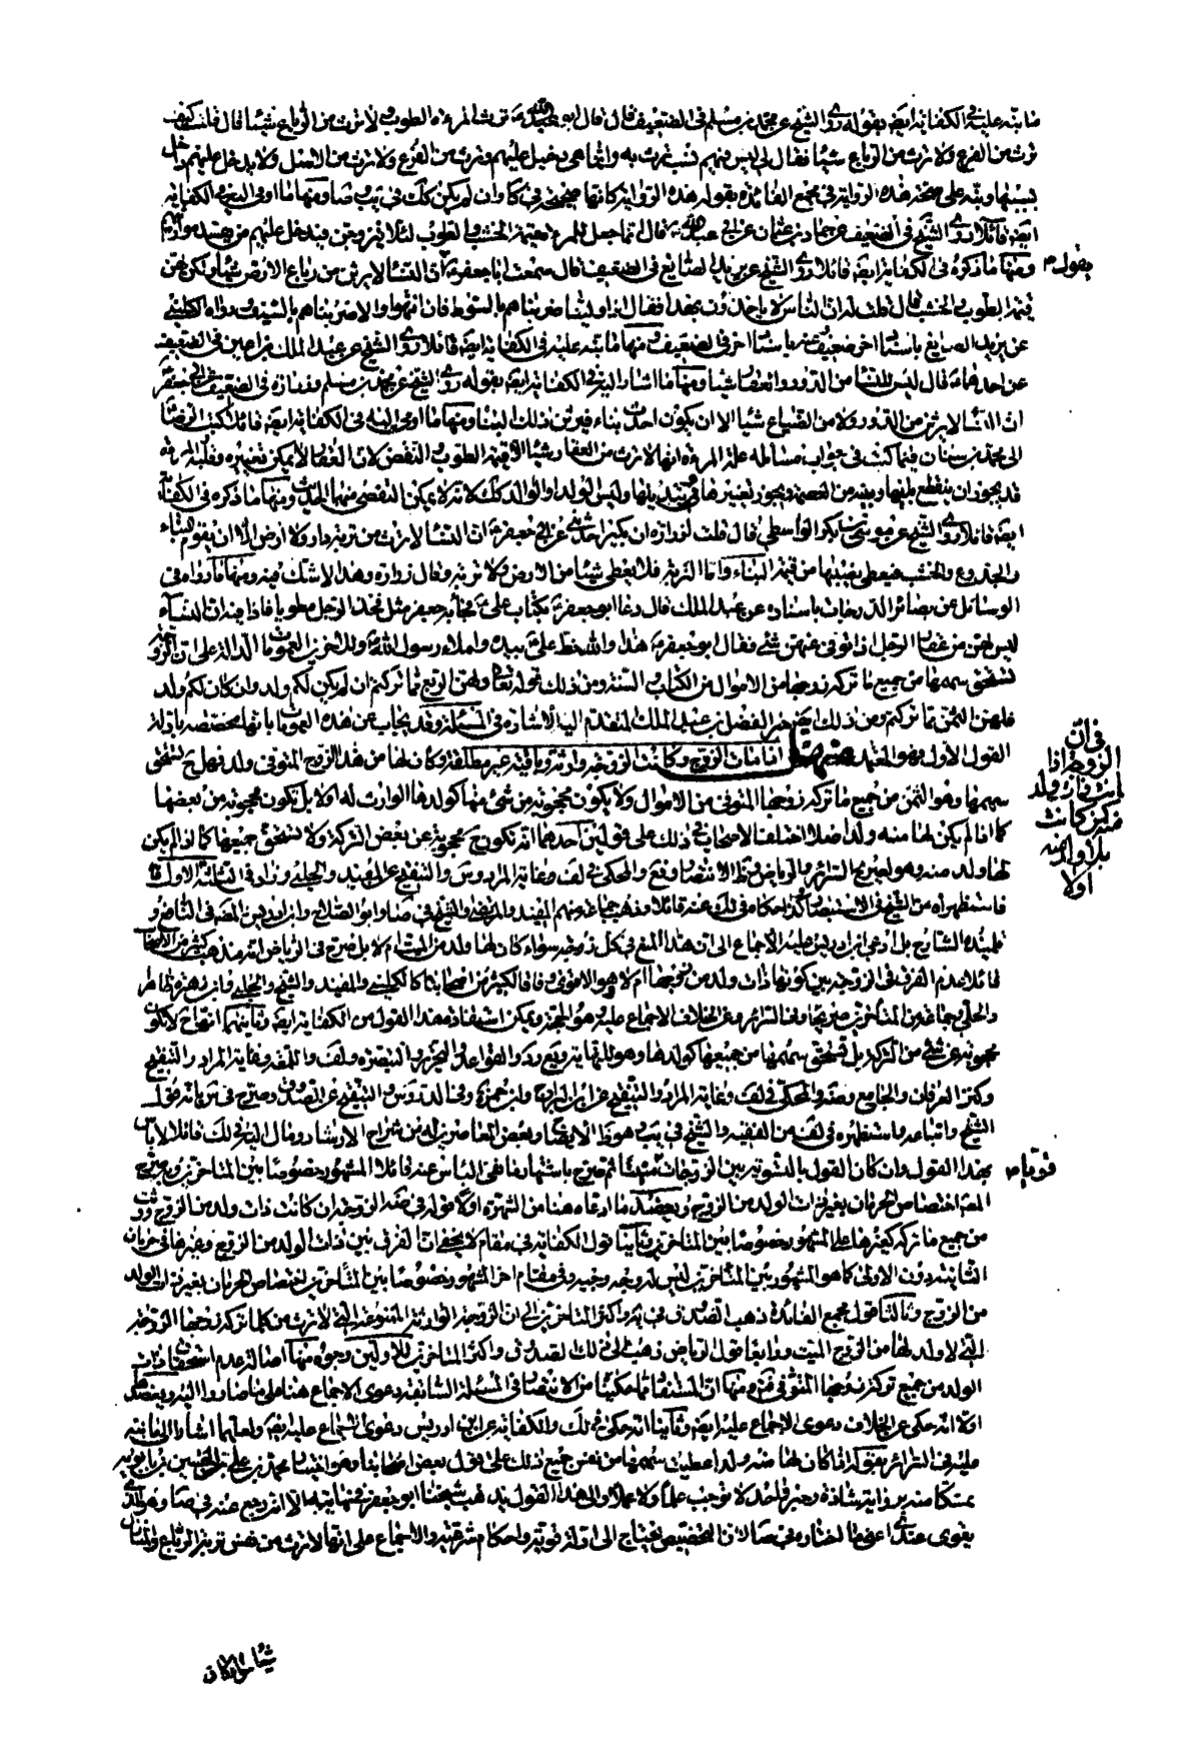 ما نبه عليه في الكفاية ايضا بقوله روى الشيخ عن محمد بن مسلم في الضعيف قال قال ابو عبد الله ع ترث المرءة الطوب ولا ترث من الرباع شيئا قال قلت كيف
ترث من الفرع ولا ترث من الرباع شيئا فقال لي ليس منهم نسب ترث به وانما هي دخيل عليهم فترث من الفرع ولا ترث من الاصل ولا يدخل عليهم داخل
بسببها ونبه على صحة هذه الرواية في مجمع الفائدة بقوله هذه الرواية كانها صحيحة في كا وان لم يكن كك في يب وصا ومنها ما اومى اليه في الكفاية
ايضا قائلا روى الشيخ في الضعيف عن حماد بن عثمان عن ابي عبد الله ع قال انما جعل للمرءة قيمة الخشب والطوب لئلا يتزوجن فيدخل عليهم من يفسد مواريثهم
ومنها ما ذكره في الكفاية ايضا قائلا روى الشيخ عن يزيد الصائغ في الضعيف قال سمعت ابا جعفر ع ان النساء لا يرثن من رباع الارض شيئا ولكن لهن
قيمة الطوب والخشب قال قلت له ان الناس لا ياخذون بهذا فقال اذا ولينا ضربناهم بالسوط فان انتهوا والا ضربناهم بالسيف ورواه الكليني
عن يزيد الصايغ باسناد اخر ضعيف باسناد اخر في الضعيف ومنها ما نبه عليه في الكفاية ايضا قائلا روى الشيخ عن عبد الملك بن اعين في الضعيف
عن احدهما ع قال ليس للنساء من الدور والعقار شيئا ومنها ما اشار اليه في الكفاية ايضا بقوله روى الشيخ عن محمد بن مسلم وزرارة في الضعيف عن ابي جعفر
ان النساء لا يرثن من الدور ولا من الضياع شيئا الا ان يكون احدث بناء فيرثن ذلك البناء ومنها ما اومى اليه في الكفاية ايضا قائلا كتب الرضا
الى محمد بن سنان فيما كتب في جواب مسائله علة المرءة انها لا ترث من العقار شيئا الا قيمة الطوب والنقض لان العقار لا يمكن تغييره وقلبه والمرءة
قد يجوز ان ينقطع بينها وبينه من العصمة ويجوز تغييرها وتبديلها وليس الولد والوالد كك لانه لا يمكن التفصي منهما الحديث ومنها ما ذكره في الكفاية
ايضا قائلا روى الشيخ عن موسى بن بكر الواسطي قال قلت لزرارة ان بكيرا حدثني عن ابي جعفر ع ان النساء لا ترث من تربة دار ولا ارض الا ان يقوم البناء
والجذوع والخشب فيعطى نصيبها من قيمة البناء واما التربة فلا يعطى شيئا من الارض ولا تربة وقال زرارة وهذا لا شك فيه ومنها ما رواه في
الوسائل عن بصائر الدرجات باسناده عن عبد الملك قال دعا ابو جعفر ع بكتاب علي ع فجاء به جعفر مثل فخذ الرجل مطويا فاذا فيه ان النساء
ليس لهن من عقار الرجل اذا توفى عنهن شيء فقال ابو جعفر ع هذا والله خط علي بيده واملاء رسول الله ص وللاخرين العمومات الدالة على ان الزوجة
تستحق سهمها من جميع ما تركه زوجها من الاموال من الكتاب والسنة ومن ذلك قوله تعالى ولهن الربع مما تركتم ان لم يكن لكم ولد وان كان لكم ولد
فلهن الثمن مما تركتم ومن ذلك ايضا خبر الفضل بن عبد الملك المتقدم اليه الاشارة في المسئلة وقد يجاب عن هذه العمومات بانها مخصصة بادلة
القول الاول وهو المعتمد منهل اذا مات الزوج وكانت الزوجة وارثة وباقية غير مطلقة وكان لها من هذا الزوج المتوفى ولد فهل ح تستحق
سهمها وهو الثمن من جميع ما تركه زوجها المتوفى من الاموال ولا يكون محجوبة من شئ منها كولدها الوارث له اولا بل تكون محجوبة من بعضها
كما اذا لم يكن لها منه ولد اصلا اختلف الاصحاب في ذلك على قولين احدهما انه تكون ح محجوبة عن بعض التركة ولا تستحق جميعها كما اذا لم يكن
لها ولد منه وهو لصريح السرائر والرياض وظ الانتصار وفع والمحكي في لف وغاية المراد وس والتنقيح عن المفيد والحلي وزاد في الثلثة الاول
فاستظهراه من الشيخ في الاستبصار كما حكاه في لك عنه قائلا وذهب جماعة ومنهم المفيد والمرتضى والشيخ في صا وابو الصلاح وابن ادريس والمص في النافع و
تلميذه الشارح بل ادعى ابن ادريس عليه الاجماع الى ان هذا المنع في كل زوجة سواء كان لها ولد من الميت ام لا بل صرح في الرياض انه مذهب كثير من الاصحاب
قائلا عدم الفرق في الزوجة بين كونها ذات ولد من زوجها ام لا هو الاقوى وفاقا لكثير من اصحابنا كالكليني والمفيد والشيخ والحلي وابن زهرة ظاهرا
والحلي وجماعة من المتاخرين صريحا وفي السرائر وعن الخلاف الاجماع عليه وهو الحجة ويمكن استفادة هذا القول من الكفاية ايضا وثانيهما انها ح لا تكون
محجوبة عن شئ من التركة بل تستحق سهمها من جميعها كولدها وهو للنهاية ويع ود والقواعد والتحرير والتبصرة ولف واللمعة وغاية المراد والتنقيح
وكنز العرفان والجامع وضه والمحكي في لف وغاية المراد والتنقيح عن ابن البراج وابن حمزة وفي الدروس والتنقيح عن الصدوق وصرح في ... بانه قول
الشيخ واتباعه واستظهره في لف من الفقيه والشيخ في يب وهو ظ الايضاح وبعض المعاصرين له من شراح الارشاد ومال اليه في لك قائلا لا باس
بهذا القول وان كان القول بالتسوية بين الزوجات ... ثم صرح باشتهاره نافيا الباس عنه قائلا المشهور خصوصا بين المتاخرين وبه صرح
المص اختصاص الحرمان بغير ذات الولد من الزوج ويعضد ما ادعاه هنا من الشهرة اولا قوله في ضه الزوجة ان كانت ذات ولد من الزوج ورثت
من جميع ما تركه كغيرها على المشهور خصوصا بين المتاخرين وثانيا قول الكفاية في مقام لا يخفى ان الفرق بين ذات الولد من الزوج وغيرها في حرمان
الثانية دون الاولى كما هو المشهور بين المتاخرين ليس له وجه وجيه وفي مقام اخر المشهور خصوصا بين المتاخرين اختصاص الحرمان بغير ذات الولد
من الزوج وثالثا قول مجمع الفائدة ذهب الصدوق في يه واكثر المتاخرين الى ان الزوجة الوارثة الممنوعة التي لا ترث من كلما تركه زوجها الزوجة
التي لا ولد لها من الزوج الميت ورابعا قول الرياض ذهب الى ذلك الصدوق واكثر المتاخرين للاولين وجوه منها اصالة عدم استحقاق ذات
الولد من جميع تركة زوجها المتوفى عنها ومنها ان المستفاد مما حكينا من الانتصار في المسئلة السابقة دعوى الاجماع هنا على ما صاروا اليه ويعضده
اولا انه حكى عن الخلاف دعوى الاجماع عليه ايضا وثانيا انه حكى في لك والكفاية عن ابن ادريس دعوى الاجماع عليه ايضا ولعلهما اشارا الى ما نبه
عليه في السرائر بقوله اذا كان لها منه ولد اعطيت سهمها من نفس جميع ذلك على قول بعض اصحابنا وهو اختيار محمد بن علي بن الحسين بن بابويه
تمسكا منه برواية شاذة وخبر واحد لا يوجب علما ولا عملا والى هذا القول يذهب شيخنا ابو جعفر في نهايته الا انه رجع عنه في صا وهو الذي
يقوى عندي اعني ما اختاره في صا لان التخصيص يحتاج الى ادلة قوية واحكام شرعية والاجماع على انها لا ترث من نفس تربة الرباع والمنازل
شيئا سواء كان
بقوله م
في ان
الزوجة اذا
كانت ذات ولد
منه كمن كانت
بلا ولد منه
اولا
قويا م